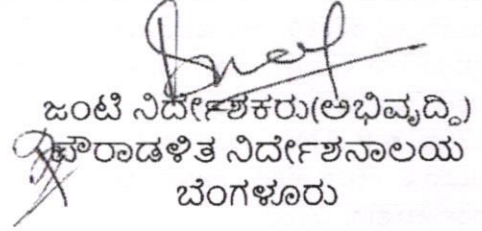 ಜಂಟಿ ನಿರ್ದೇಶಕರು(ಅಭಿವೃದ್ಧಿ)
ಪೌರಾಡಳಿತ ನಿರ್ದೇಶನಾಲಯ
ಬೆಂಗಳೂರು